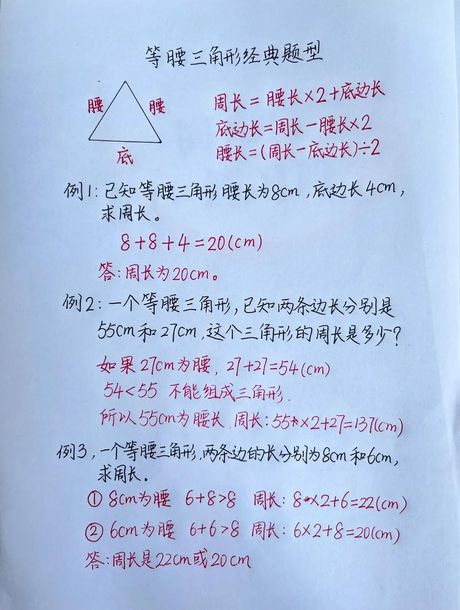 等腰三角形经典题型
腰 腰 周长=腰长×2+底边长
底边长=周长-腰长×2
底 腰长=(周长-底边长)÷2
例1:已知等腰三角形腰长为8cm,底边长4cm,
求周长。
8+8+4=20(cm)
答:周长为20cm。
例2:一个等腰三角形,已知两条边长分别是
55cm和27cm,这个三角形的周长是多少?
如果27cm为腰,27+27=54(cm)
54<55 不能组成三角形.
所以55cm为腰长 周长:55×2+27=137(cm)
例3,一个等腰三角形,两条边的长分别为8cm和6cm,
求周长。
① 8cm为腰 6+8>8 周长:8×2+6=22(cm)
② 6cm为腰 6+6>8 周长:6×2+8=20(cm)
答:周长是22cm或20cm